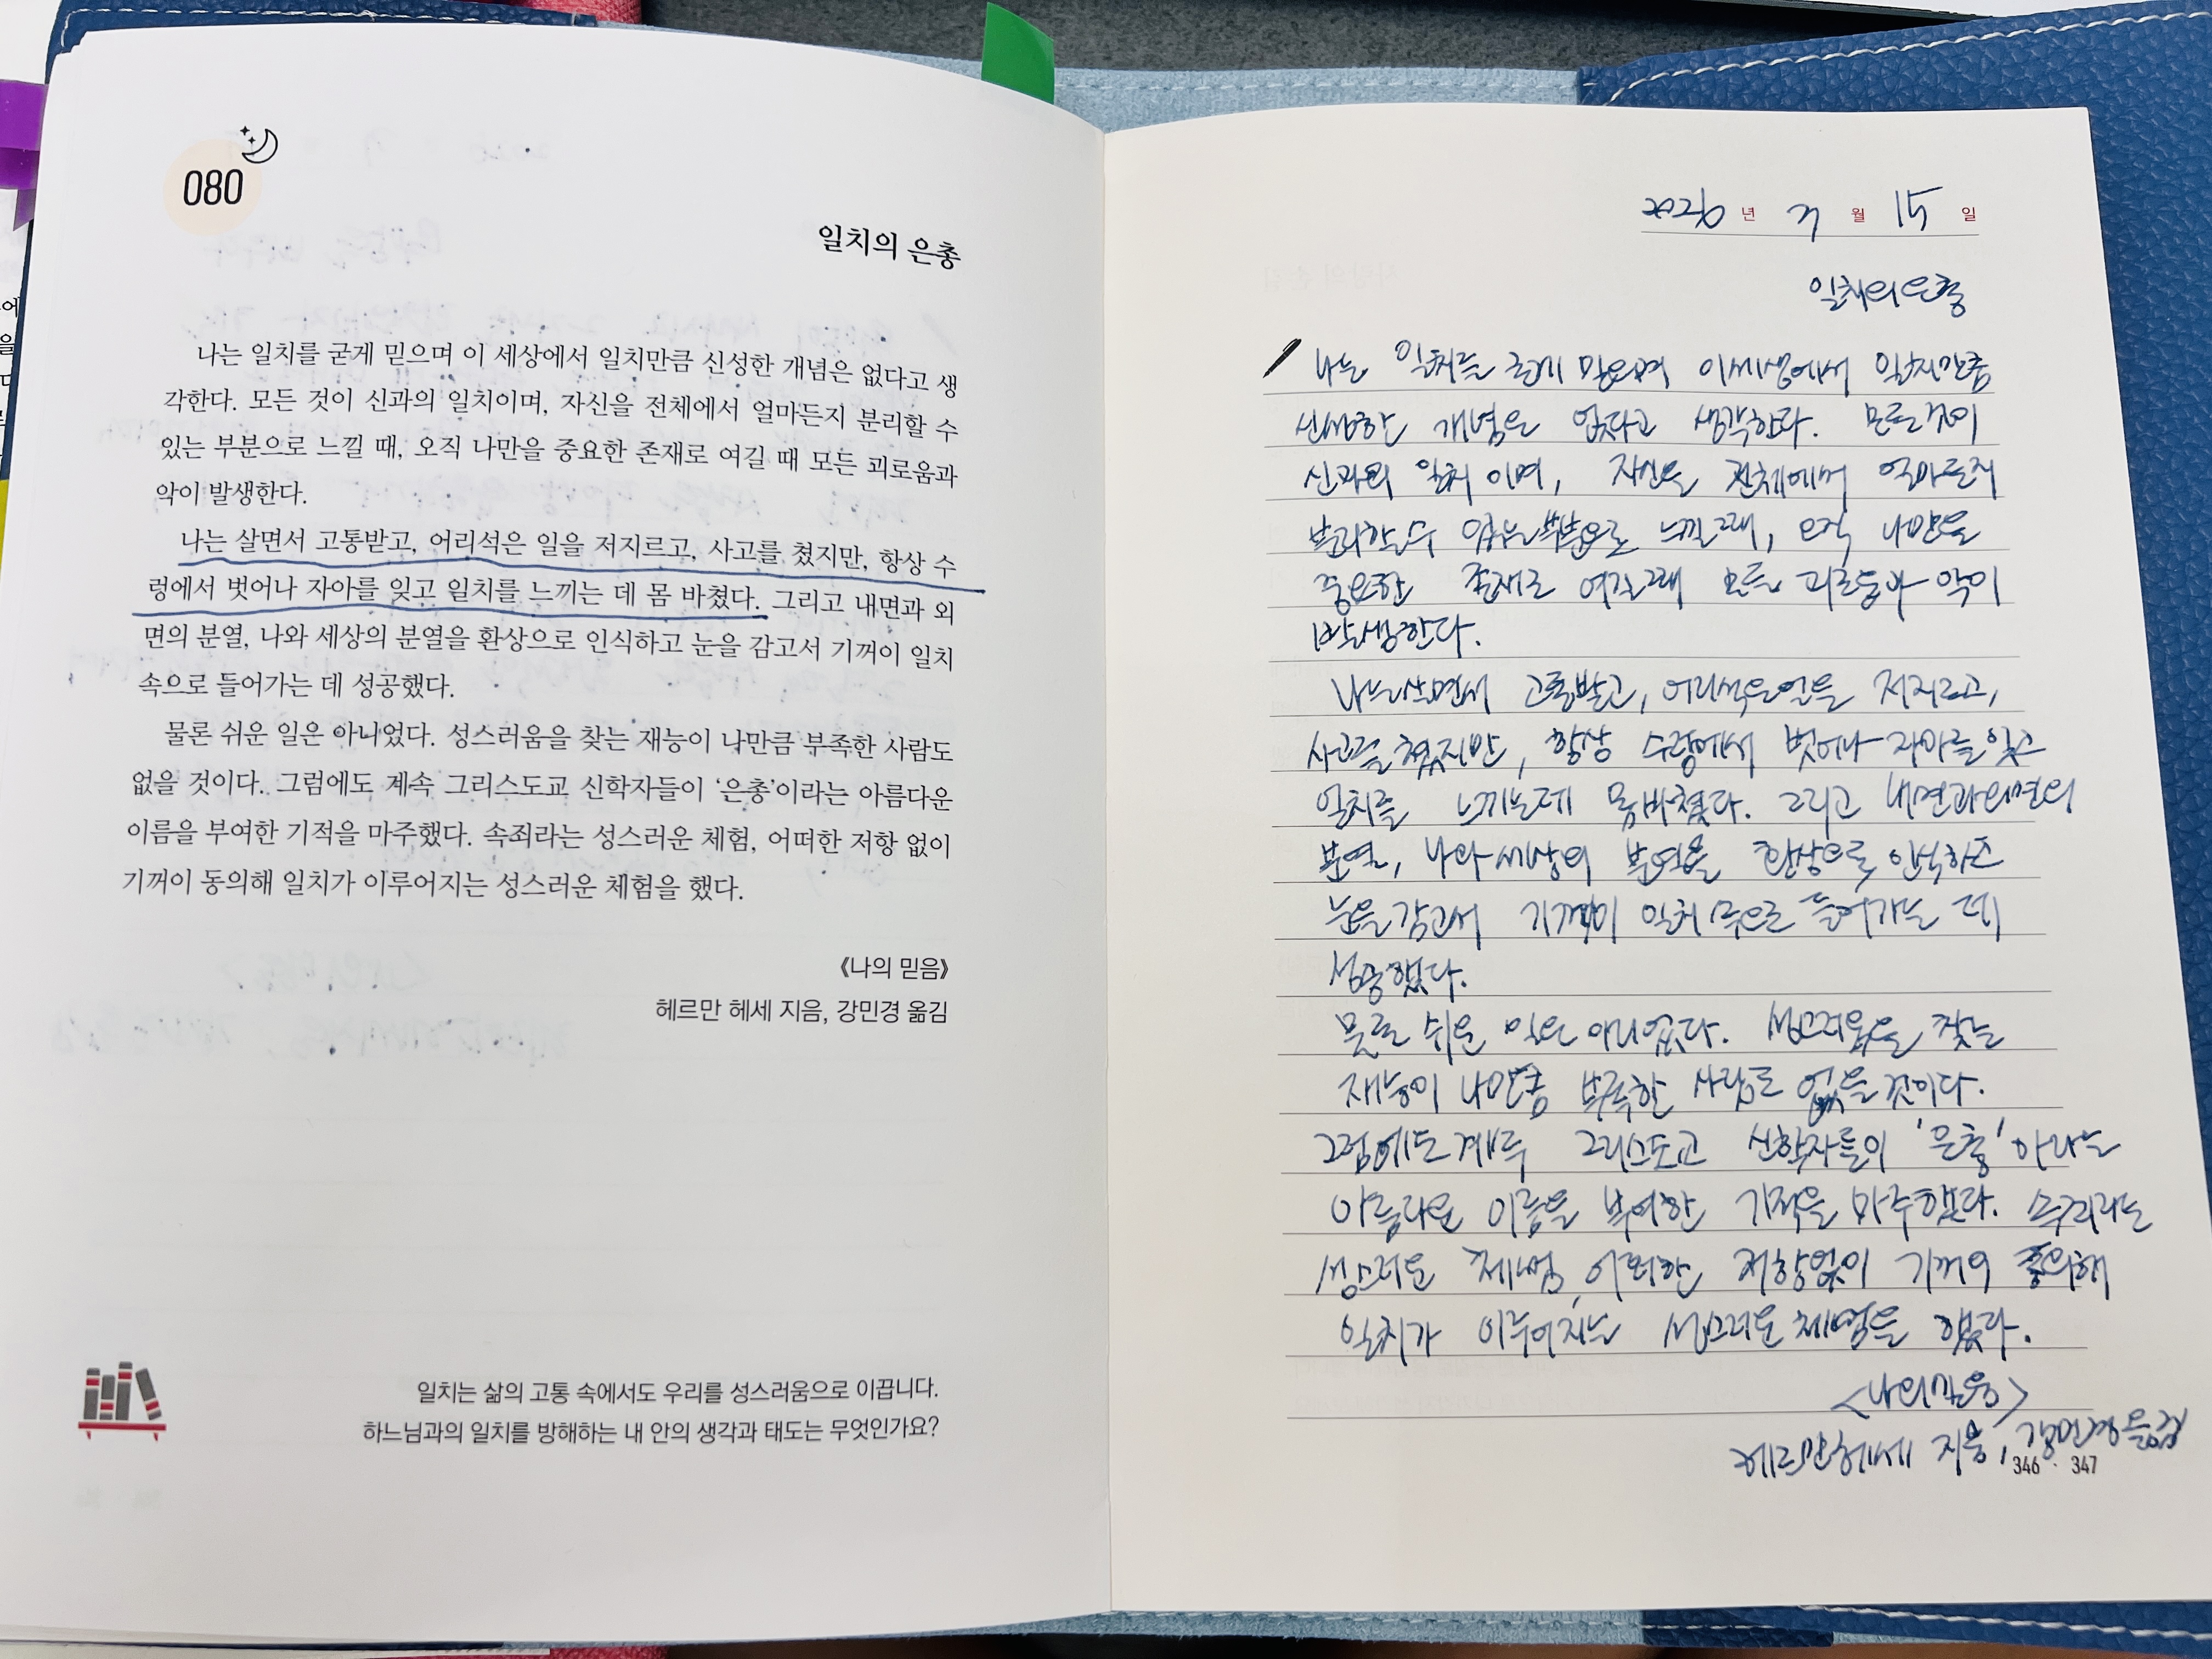 080
일치의 은총
나는 일치를 굳게 믿으며 이 세상에서 일치만큼 신성한 개념은 없다고 생
각한다. 모든 것이 신과의 일치이며, 자신을 전체에서 얼마든지 분리할 수
있는 부분으로 느낄 때, 오직 나만을 중요한 존재로 여길 때 모든 괴로움과
악이 발생한다.
나는 살면서 고통받고, 어리석은 일을 저지르고, 사고를 쳤지만, 항상 수
렁에서 벗어나 자아를 잊고 일치를 느끼는 데 몸 바쳤다. 그리고 내면과 외
면의 분열, 나와 세상의 분열을 환상으로 인식하고 눈을 감고서 기꺼이 일치
속으로 들어가는 데 성공했다.
물론 쉬운 일은 아니었다. 성스러움을 찾는 재능이 나만큼 부족한 사람도
없을 것이다. 그럼에도 계속 그리스도교 신학자들이 ‘은총’이라는 아름다운
이름을 부여한 기적을 마주했다. 속죄라는 성스러운 체험, 어떠한 저항 없이
기꺼이 동의해 일치가 이루어지는 성스러운 체험을 했다.
《나의 믿음》
헤르만 헤세 지음, 강민경 옮김
일치는 삶의 고통 속에서도 우리를 성스러움으로 이끕니다.
하느님과의 일치를 방해하는 내 안의 생각과 태도는 무엇인가요?
2026 년 7 월 15 일
일치의 은총
나는 일치를 굳게 믿으며 이세상에서 일치만큼
신성한 개념은 없다고 생각한다. 모든것이
신과의 일치 이며, 자신을 전체에서 얼마든지
분리할수 있는부분으로 느낄때, 오직 나만을
중요한 존재로 여길때 모든 괴로움과 악이
발생한다.
나는살면서 고통받고, 어리석은일을 저지르고,
사고를 쳤지만, 항상 수렁에서 벗어나 자아를 잊고
일치를 느끼는데 몸바쳤다. 그리고 내면과외면의
분열, 나와 세상의 분열을 환상으로 인식하고
눈을 감고서 기꺼이 일치 속으로 들어가는 데
성공했다.
물론 쉬운 일은 아니었다. 성스러움을 찾는
재능이 나만큼 부족한 사람도 없을 것이다.
그럼에도 계속 그리스도교 신학자들이 '은총' 이라는
아름다운 이름을 부여한 기적을 마주했다. 속죄라는
성스러운 체험, 어떠한 저항없이 기꺼이 동의해
일치가 이루어지는 성스러운 체험을 했다.
<나의믿음>
헤르만헤세 지음, 강민경 옮김
346 · 347